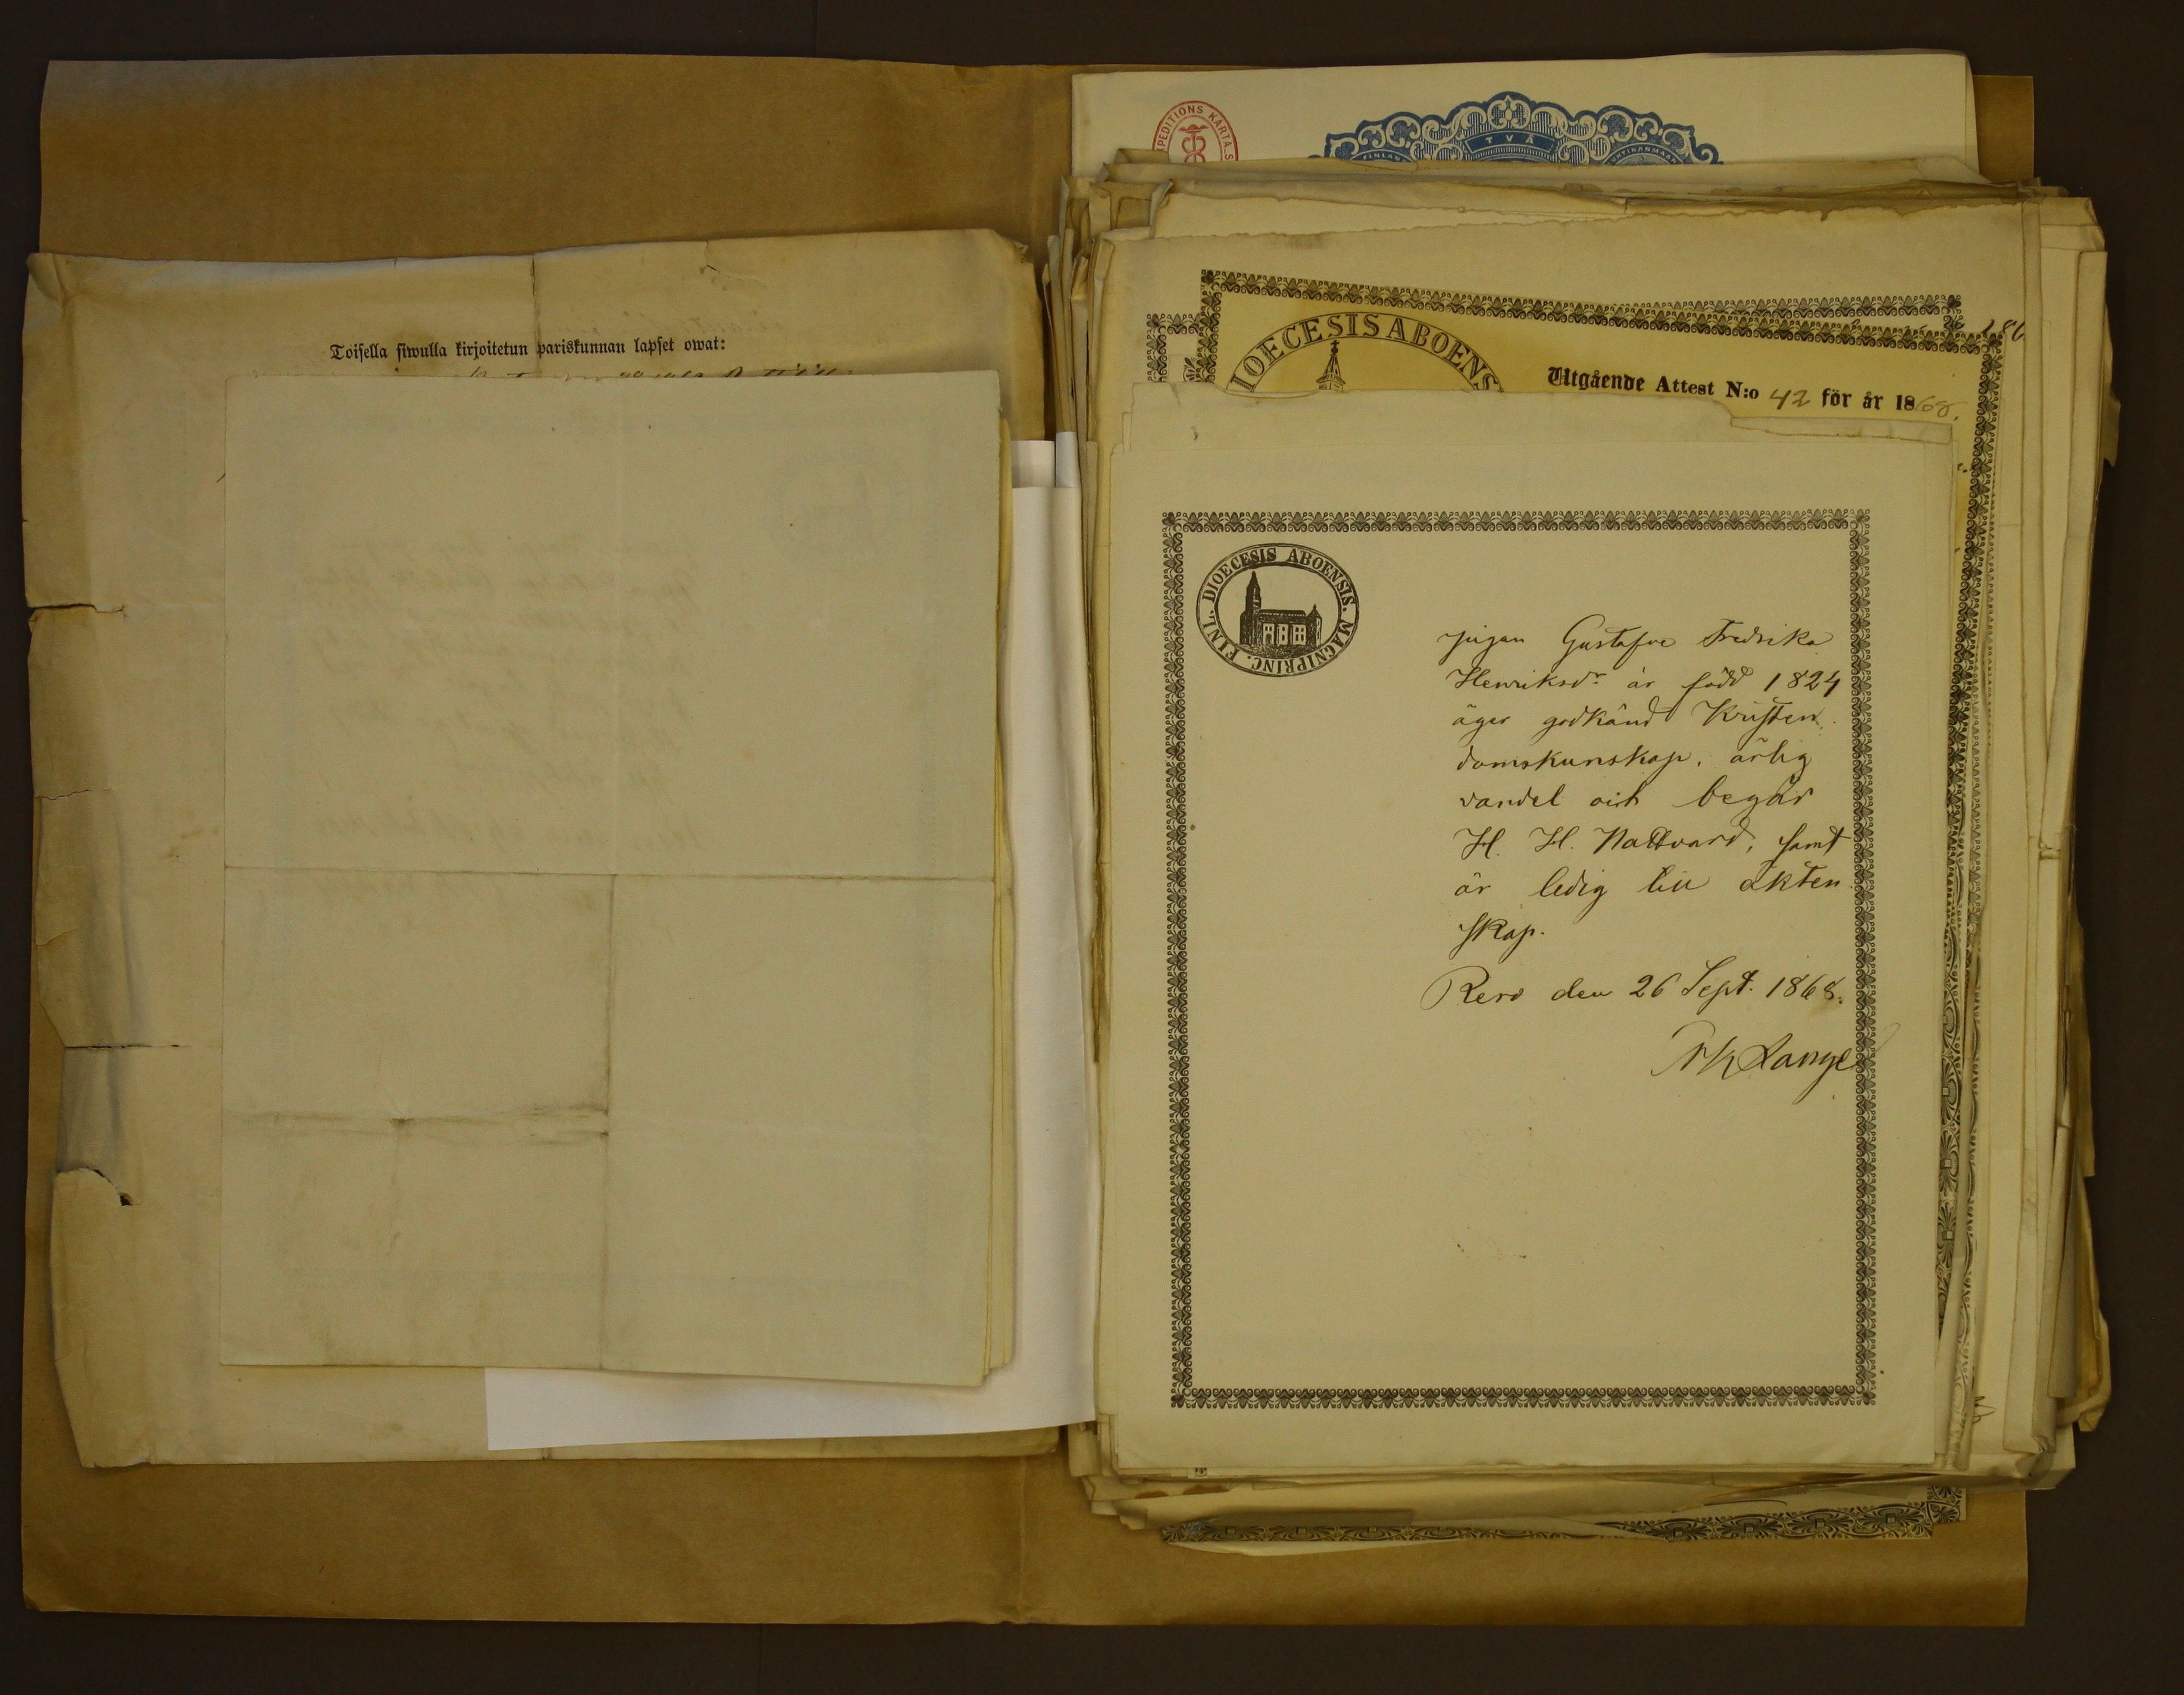 Toisella siwulla kirjoitetun pariskunnan lapset owat:
EXPEDITIONS KARTA.S
TVÅ
FINLAN
IOECESIS ABOENS
Utgående Attest N:o 42 för år 1868.
186
DIOECESIS ABOENSIS. MAGNI PRINC. FINL.
pigan Gustafva Fredrika
Henriksdr är född 1824
äger godkänd Kristen
domskunskap, ärlig
vandel och begär
H. H. Nattvard, samt
är ledig till äkten
skap.
Reso den 26 Sept. 1868.
Lange